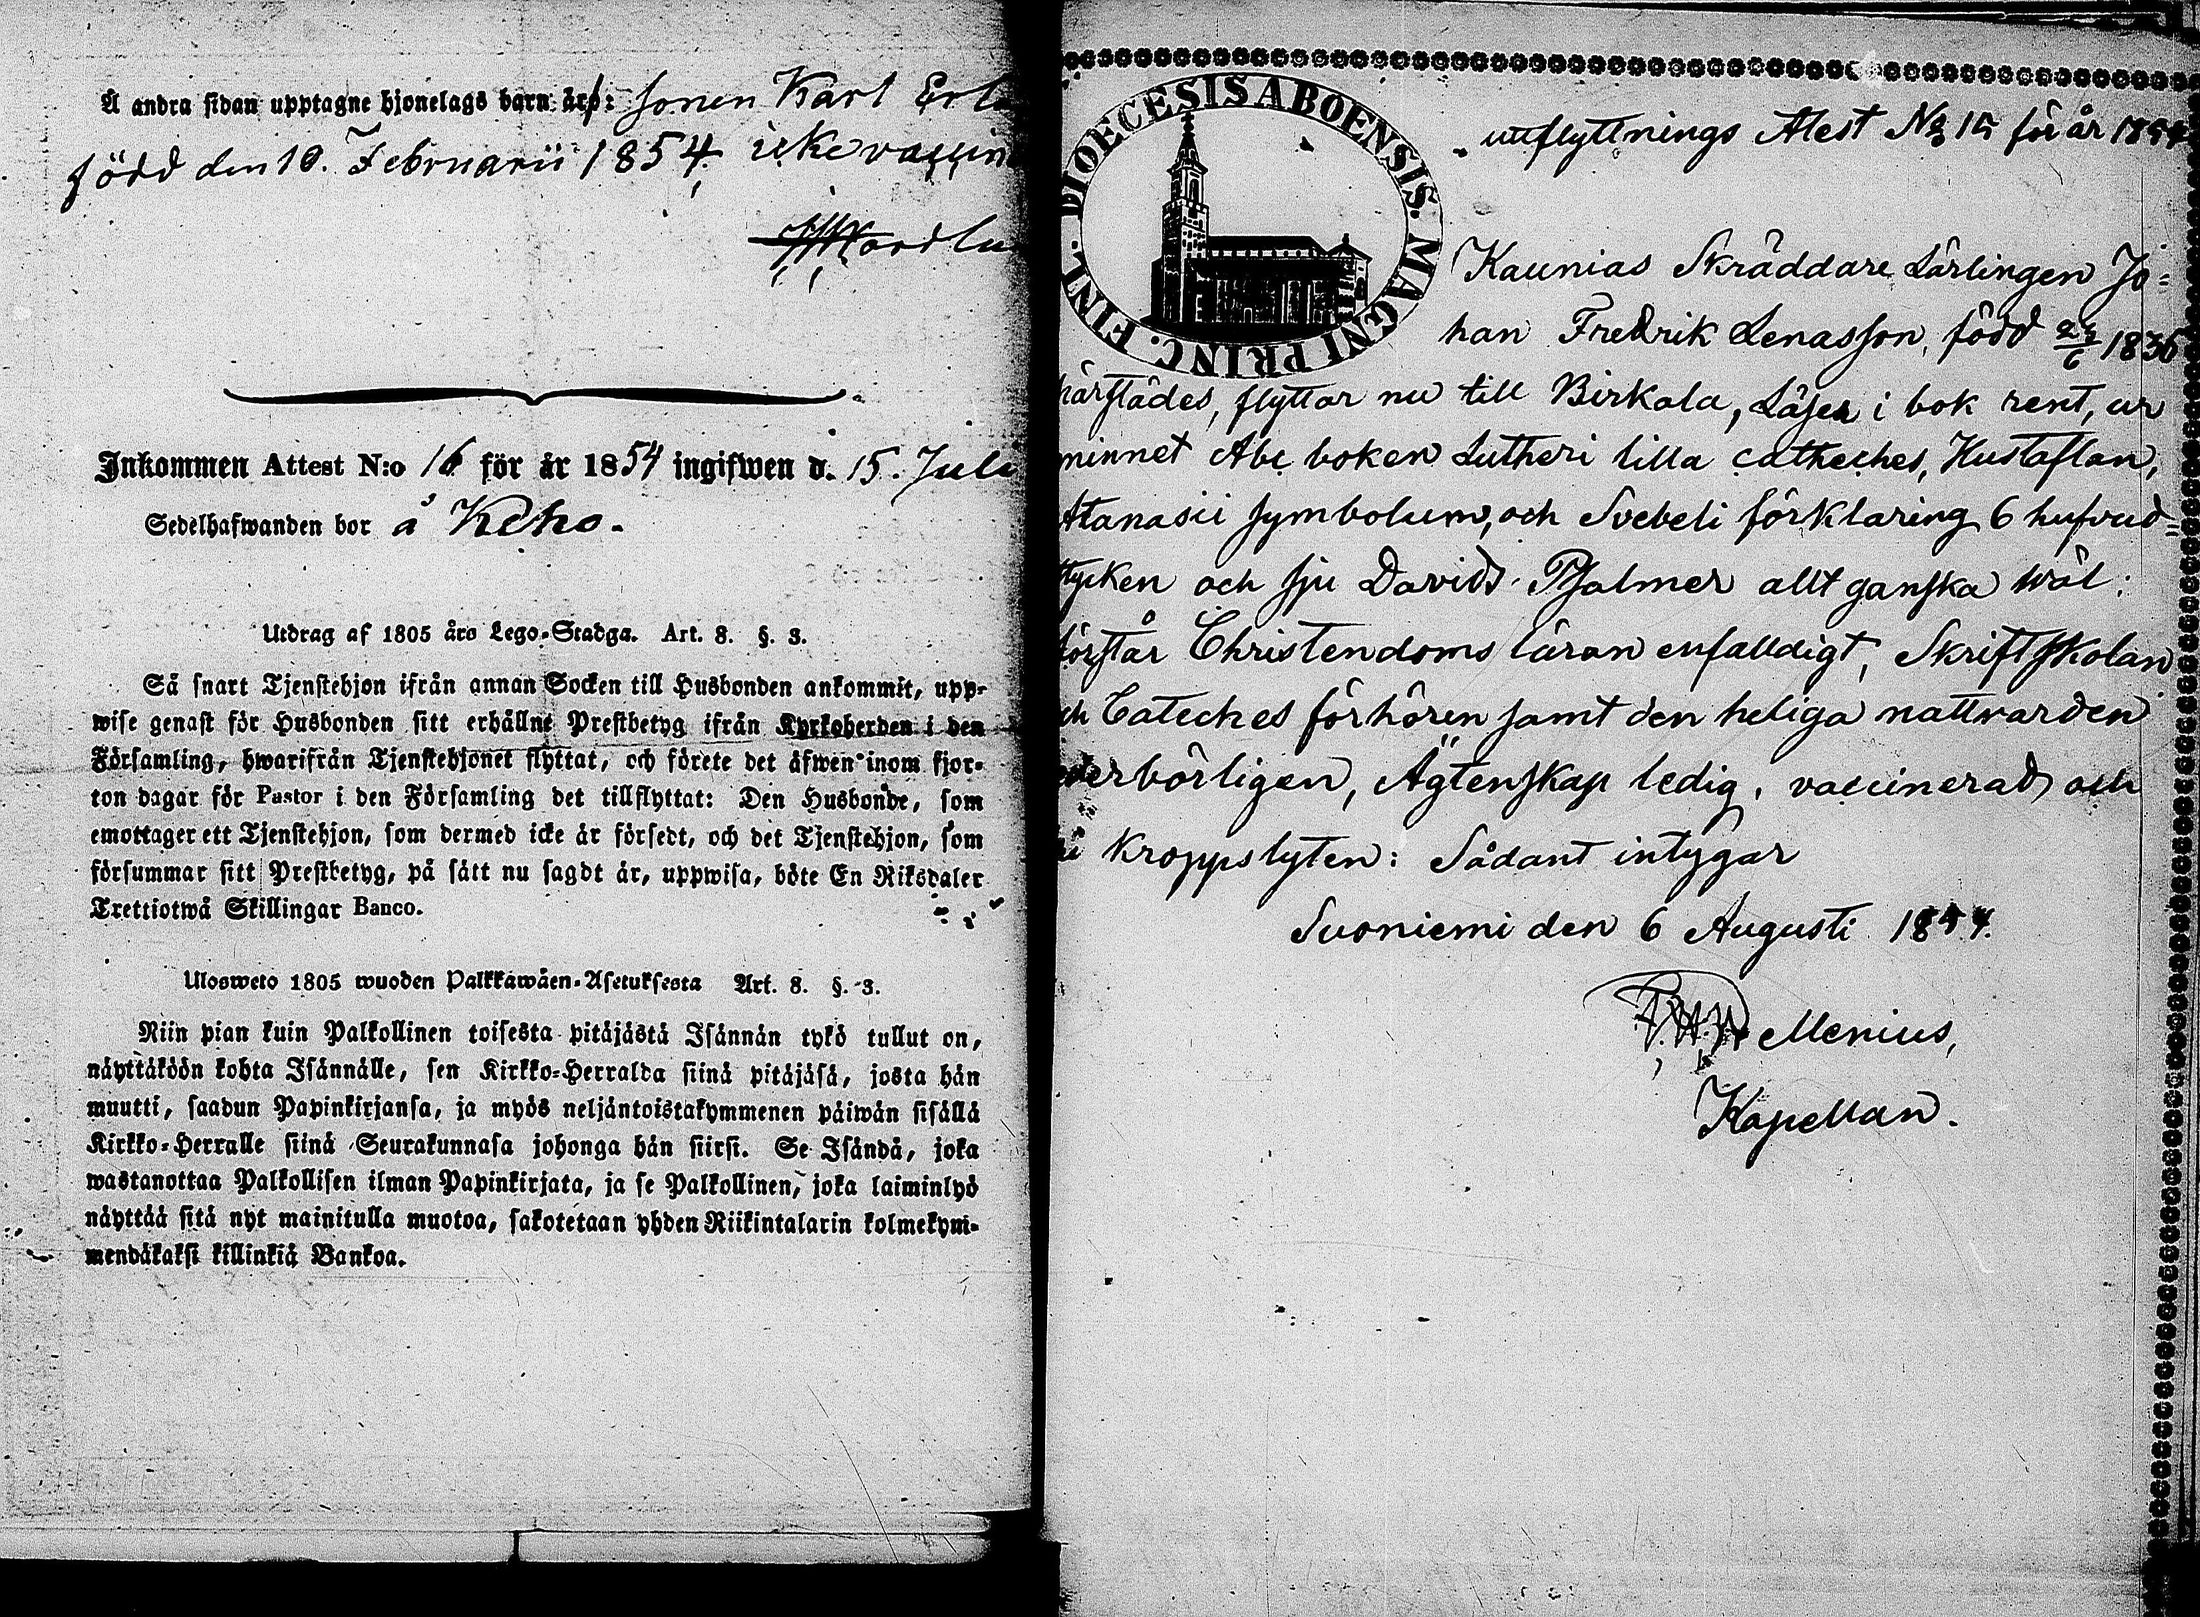 Å andra sidan upptagne hjonelags barn är: sonen Karl Erl
född den 10. Februarii 1854. icke vaccin
Inkommen Attest N:o 16 för år 1854 ingifwen d. 15. Juli
Sedelhafwanden bor å Keho.
Utdrag af 1805 års Lego-Stadga. Art. 8. §. 3.
Så snart Tjenstehjon ifrån annan Socken till Husbonden ankommit, upp-
wise genast för Husbonden sitt erhållne Prestbetyg ifrån Kyrkoherden i den
Församling, hwarifrån Tjenstehjonet flyttat, och förete det äfwen inom fjor-
ton dagar för Pastor i den Församling det tillflyttat: Den Husbonde, som
emottager ett Tjenstehjon, som dermed icke är försedt, och det Tjenstehjon, som
försummar sitt Prestbetyg, på sätt nu sagdt är, uppwisa, böte En Riksdaler
Trettiotwå Skillingar Banco.
Ulosweto 1805 wuoden Palkkawäen-Asetuksesta Art. 8. §. 3.
Niin pian kuin Palkollinen toisesta pitäjästä Isännän tykö tullut on,
näyttäköön kohta Isännälle, sen Kirkko-Herralda siinä pitäjäsä, josta hän
muutti, saadun Papinkirjansa, ja myös neljäntoistakymmenen päiwän sisällä
Kirkko-Herralle siinä Seurakunnasa johonga hän siirsi. Se Isändä, joka
wastanottaa Palkollisen ilman Papinkirjata, ja se Palkollinen, joka laiminlyö
näyttää sitä nyt mainitulla muotoa, sakotetaan yhden Riikintalarin kolmekym-
mendäkaksi killinkiä Bankoa.
DIOECESIS ABOENSIS. MAGNI PRINC. FINL.
utflyttnings Atest No 15 för år 1854
Kaunias Skräddare Lärlingen Jo=
han Fredrik Lenasson, född 23/6 1836
härstädes, flyttar nu till Birkala, Läser i bok rent, ur
minnet Abc boken Lutheri lilla catheches, Hustaflan,
Atanasii symbolum, och Svebeli förklaring 6 hufvud=
stycken och sju Davids Psalmer allt ganska wäl:
förstår Christendoms läran enfalldigt, Skriftskolan
och Cateches förhören samt den heliga nattvarden
ederbörligen, Ägtenskap ledig, vaccinerad och
kroppslyten: Sådant intygar
Suoniemi den 6 Augusti 1854.
Menius,
Kapellan.